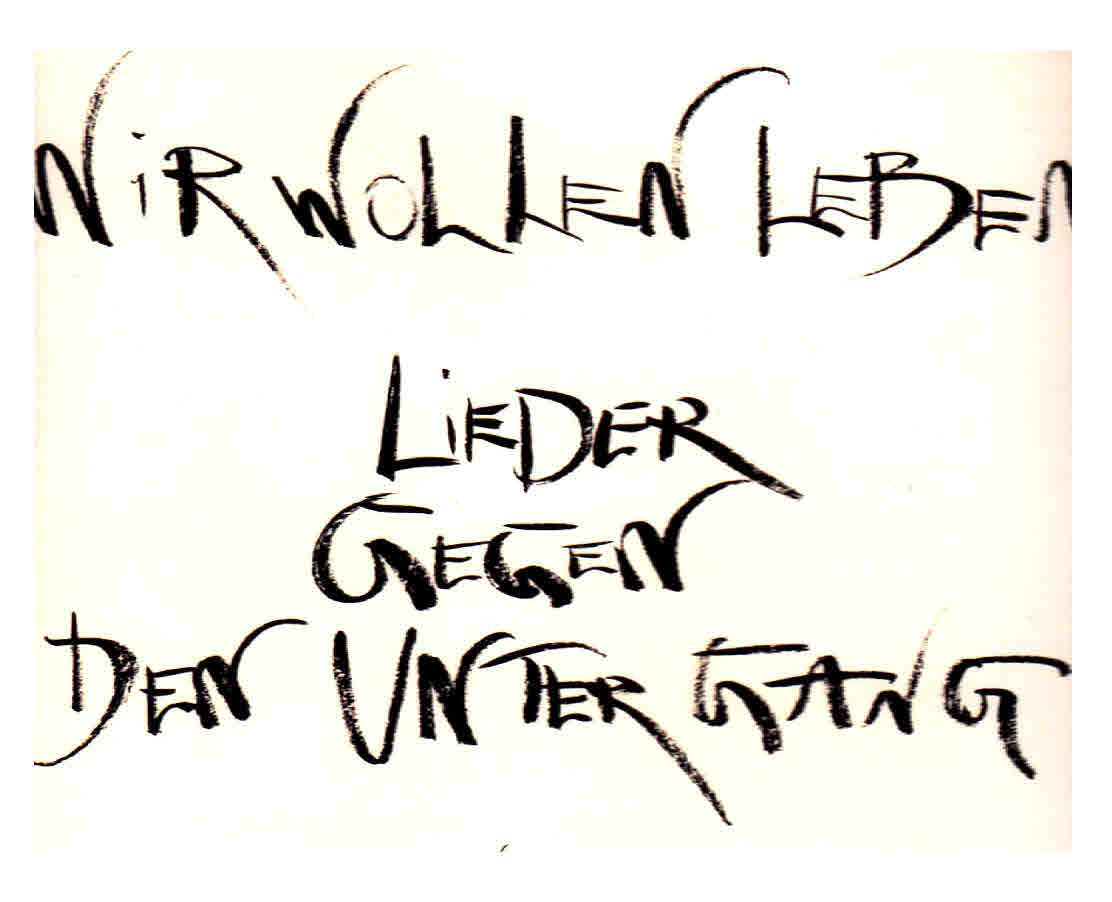 WiR WOLLEN LEBEN
LiEDER
GEGEN
DEN UNTERGANG